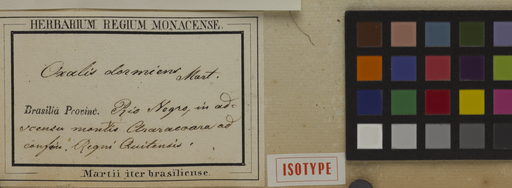 HERBARIUM REGIUM MONACENSE.
Oxalis dormiens Mart.
Brasilia Provinc. Rio Negro, in ad-
scensu montis Araracoara ad
confin. Regni Quitensis.
Martii iter brasiliense.
ISOTYPE